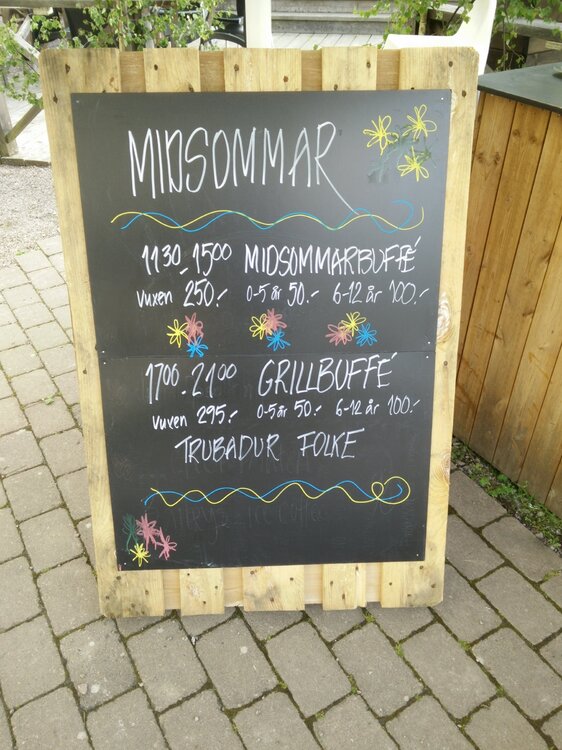 MIDSOMMAR
1130-1500 MIDSOMMARBUFFÉ
Vuxen 250.- 0-5 år 50.- 6-12 år 100.-
1700-2100 GRILLBUFFÉ
Vuxen 295.- 0-5 år 50.- 6-12 år 100.-
TRUBADUR FOLKE